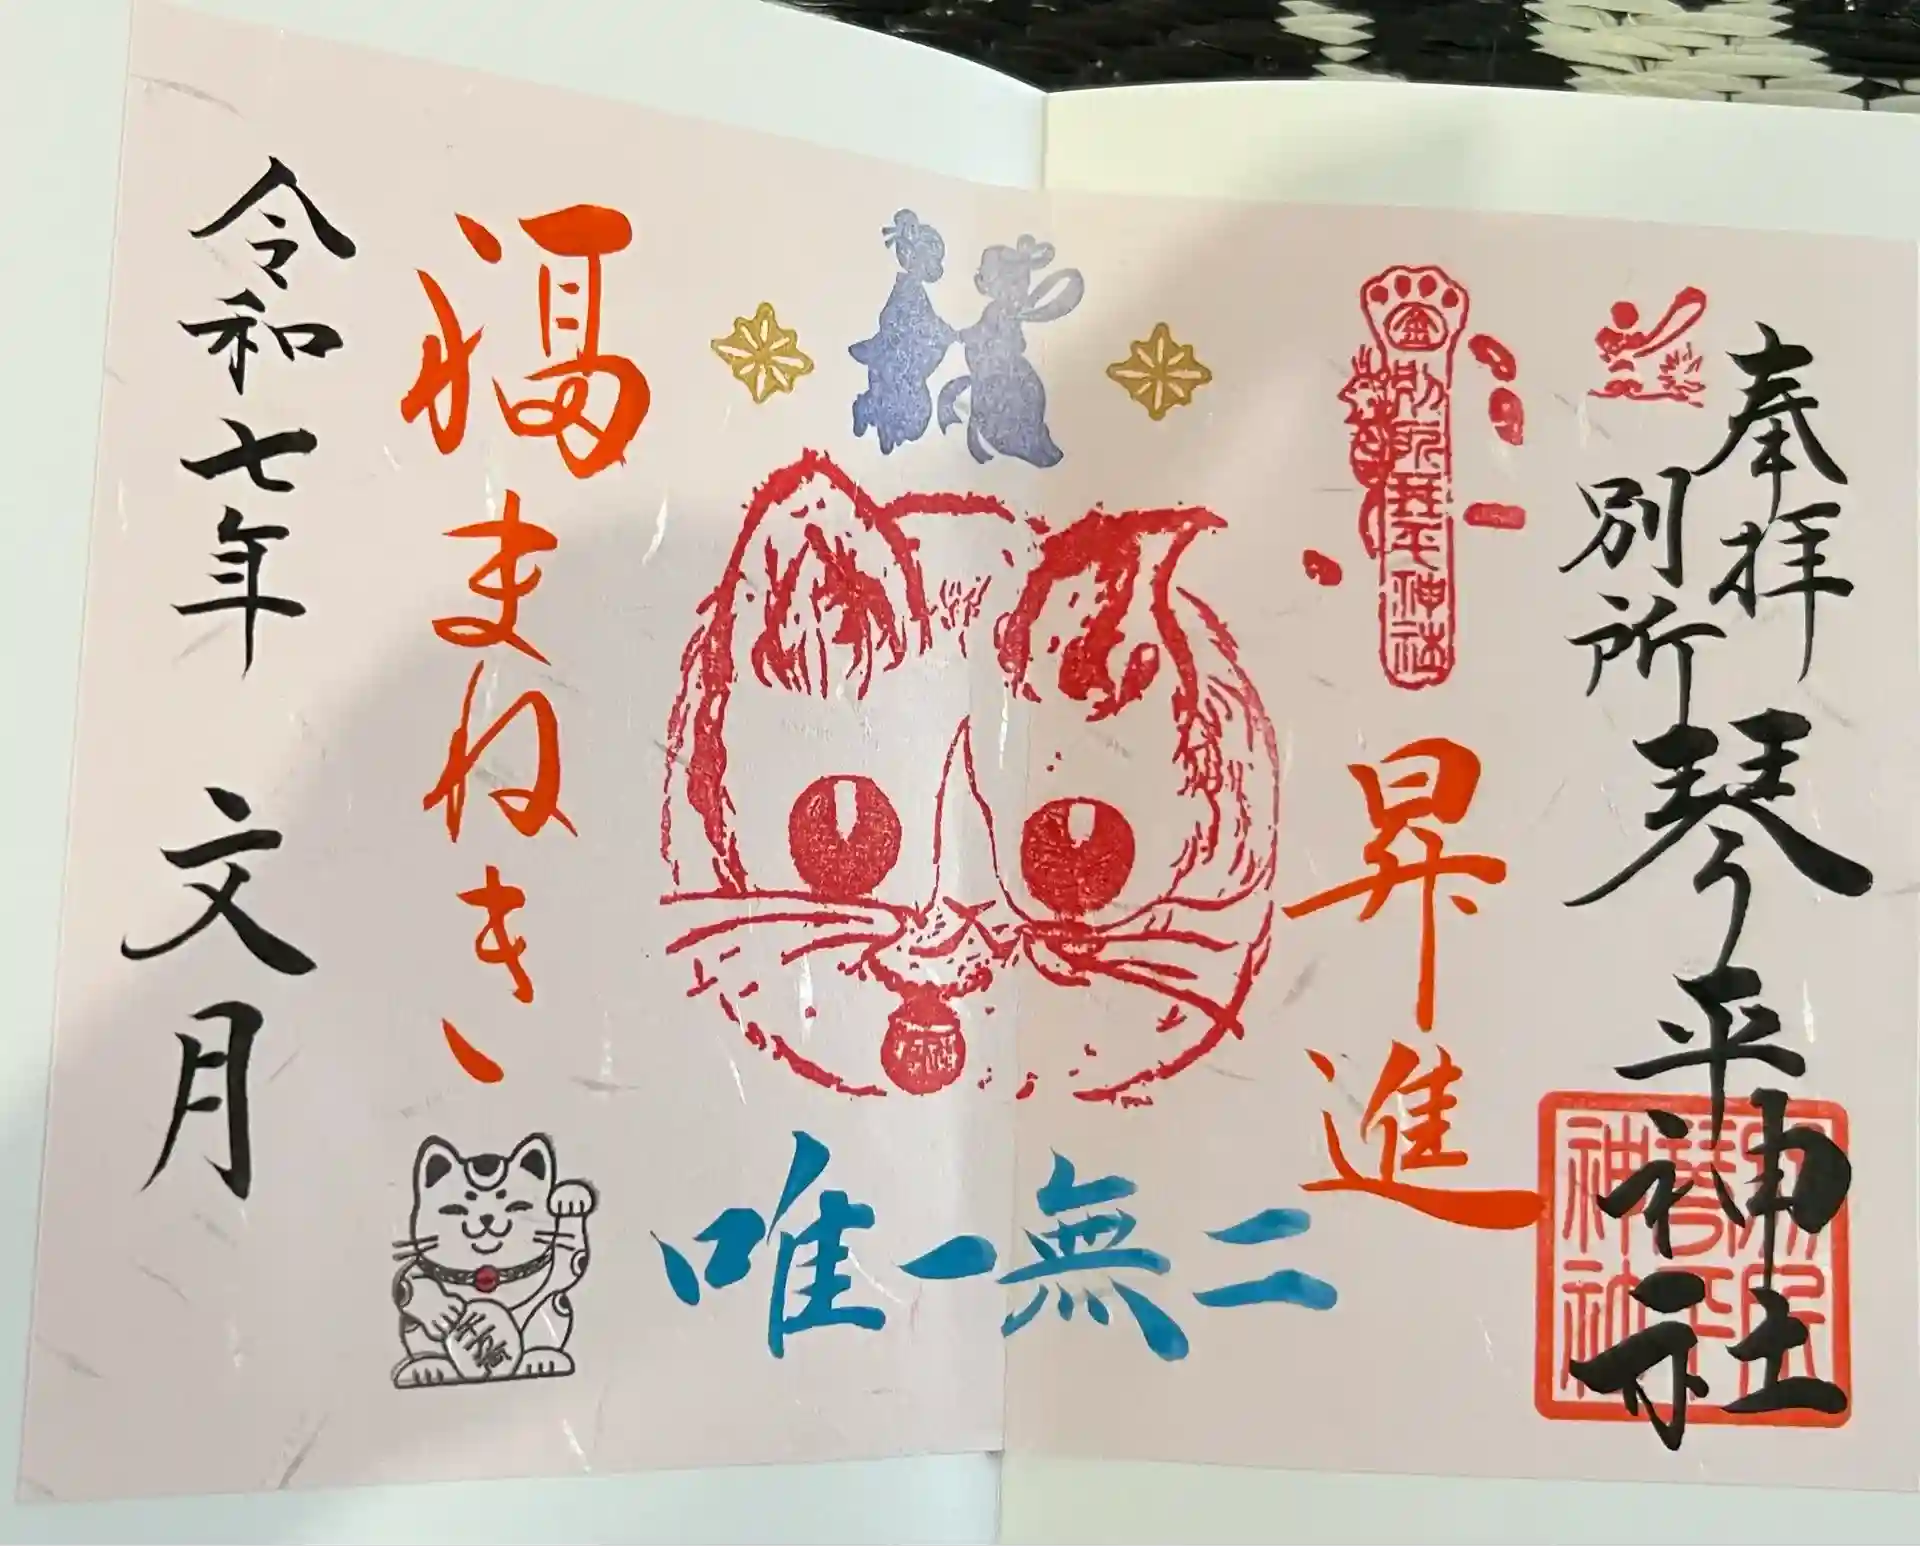 奉拝
別所琴平神社
金
別所琴平神社
昇進
唯一無二
福まねき
令和七年 文月